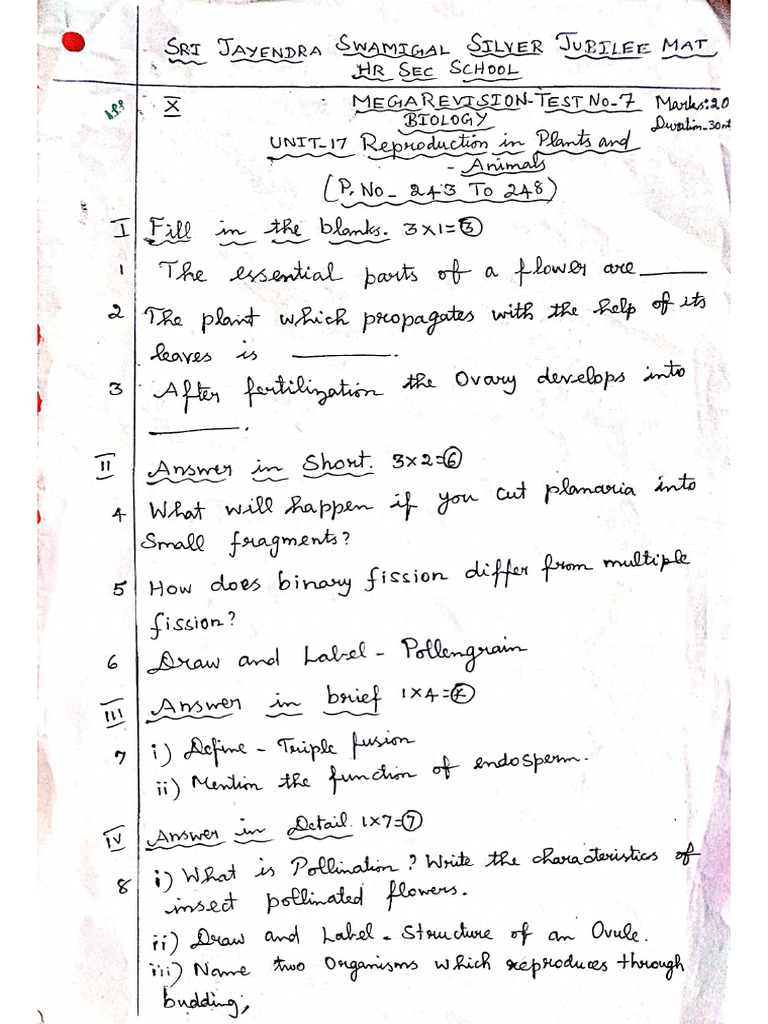 SRI JAYENDRA SWAMIGAL SILVER JUBILEE MAT
HR SEC SCHOOL
X MEGA REVISION-TEST NO-7 Marks:20
BIOLOGY Duration-30mt
UNIT-17 Reproduction in Plants and
- Animals
(P. No - 243 TO 248)
I Fill in the blanks. 3x1=3
1 The essential parts of a flower are ______
2 The plant which propagates with the help of its
leaves is ______.
3 After fertilization the Ovary develops into
______.
II Answer in Short. 3x2=6
4 What will happen if you cut planaria into
Small fragments?
5 How does binary fission differ from multiple
fission?
6 Draw and Label - Pollengrain
III Answer in brief 1x4=4
7 i) Define - Triple fusion
ii) Mention the function of endosperm.
IV Answer in Detail. 1x7=7
8 i) What is Pollination? Write the characteristics of
insect pollinated flowers.
ii) Draw and Label - Structure of an Ovule.
iii) Name two Organisms which reproduces through
budding;